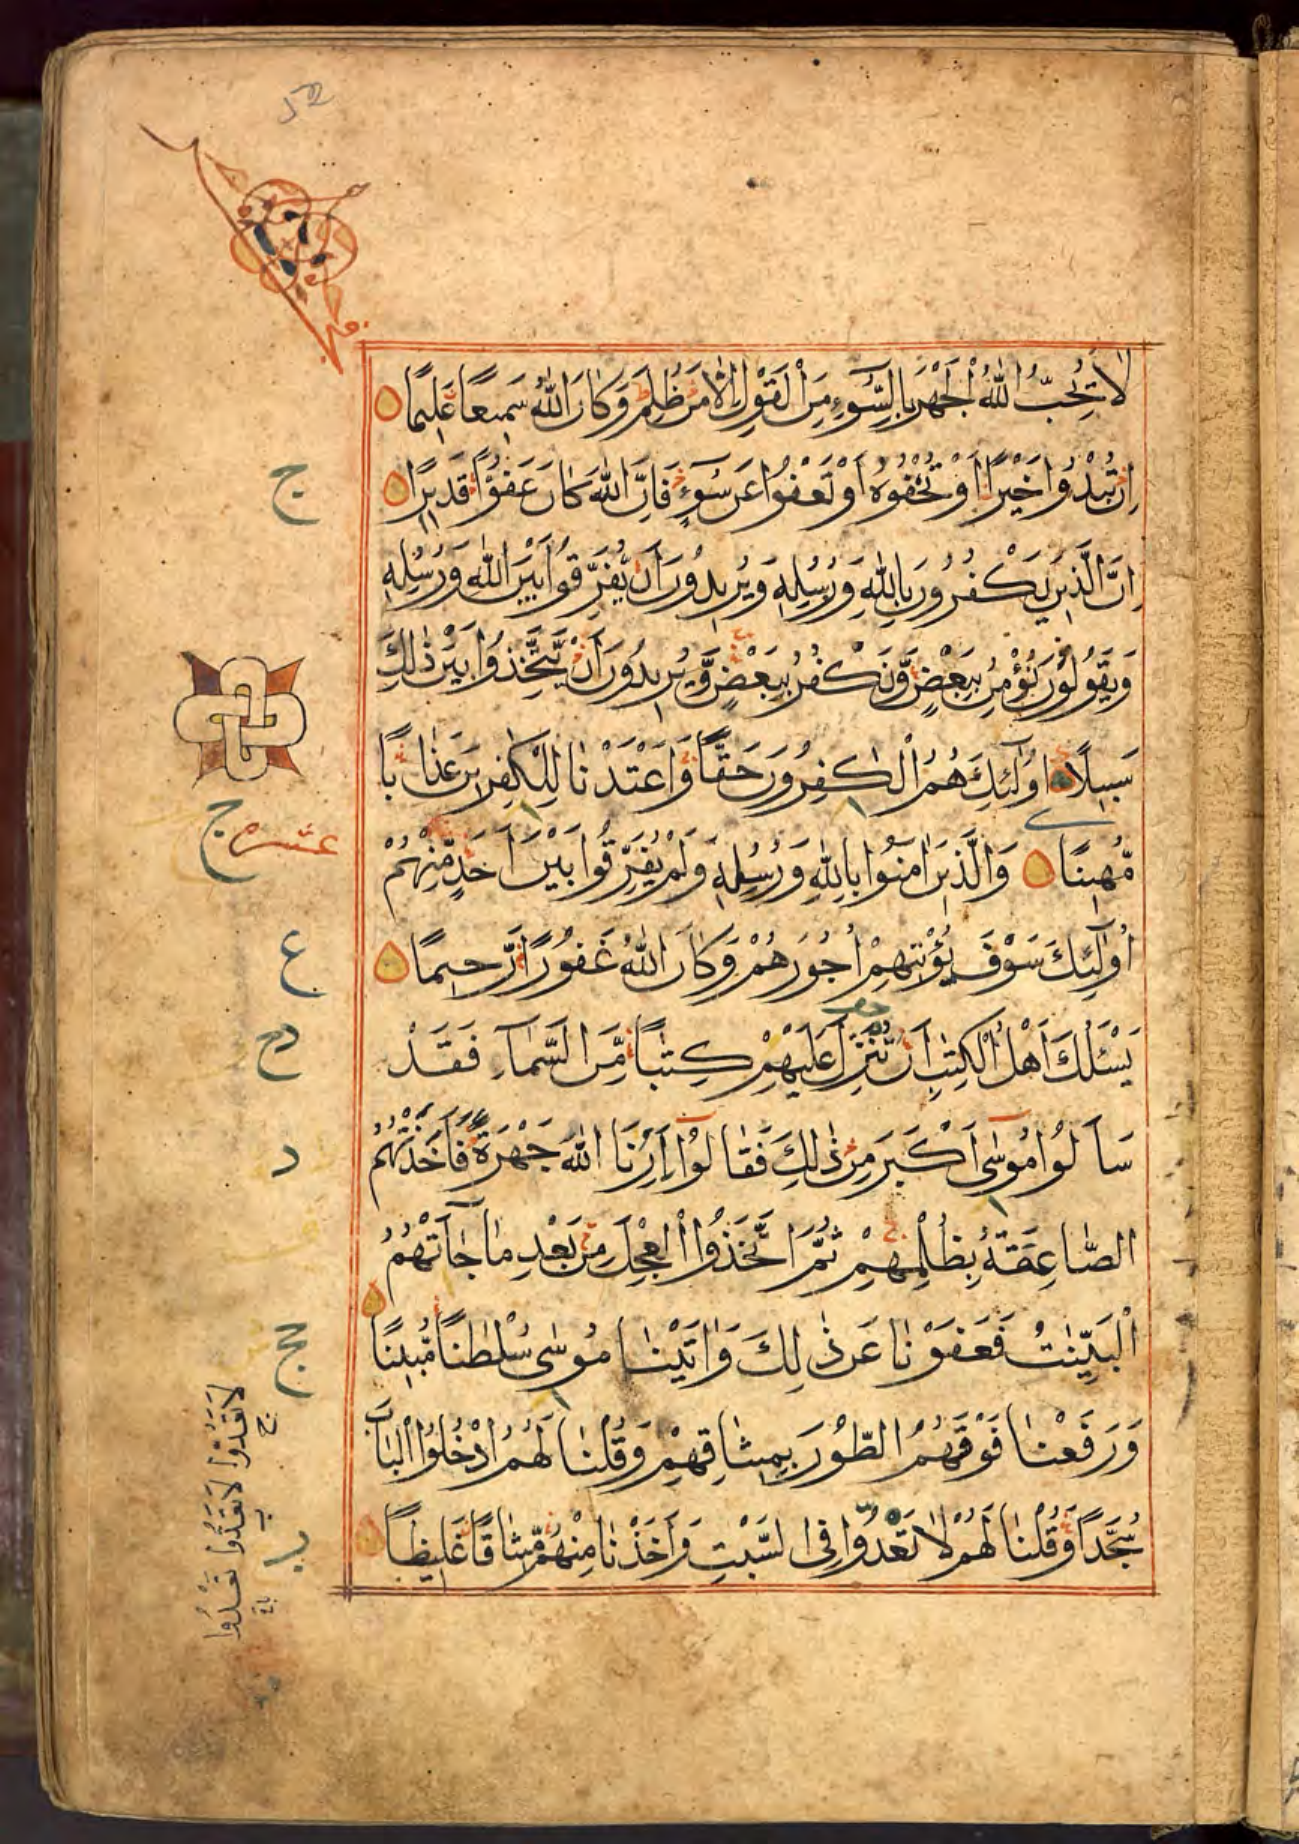 لَا يُحِبُّ اللهُ الْجَهْرَ بِالسُّوٓءِ مِنَ الْقَوْلِ اِلَّا مَنْ ظُلِمَ وَكَانَ اللهُ سَمِيعًا عَلِيمًا
اِنْ تُبْدُوا خَيْرًا اَوْ تُخْفُوهُ اَوْ تَعْفُوا عَنْ سُوٓءٍ فَاِنَّ اللهَ كَانَ عَفُوًّا قَدِيرًا
ج
اِنَّ الَّذِينَ يَكْفُرُونَ بِاللهِ وَرُسُلِهِ وَيُرِيدُونَ اَنْ يُفَرِّقُوا بَيْنَ اللهِ وَرُسُلِهِ
وَيَقُولُونَ نُؤْمِنُ بِبَعْضٍ وَّنَكْفُرُ بِبَعْضٍ وَّيُرِيدُونَ اَنْ يَّتَّخِذُوا بَيْنَ ذٰلِكَ
سَبِيلًا اُولٰٓئِكَ هُمُ الْكٰفِرُونَ حَقًّا وَاَعْتَدْنَا لِلْكٰفِرِينَ عَذَابًا
ج
عشر
مُّهِينًا وَالَّذِينَ اٰمَنُوا بِاللهِ وَرُسُلِهِ وَلَمْ يُفَرِّقُوا بَيْنَ اَحَدٍ مِّنْهُمْ
اُولٰٓئِكَ سَوْفَ يُؤْتِيهِمْ اُجُورَهُمْ وَكَانَ اللهُ غَفُورًا رَّحِيمًا
ع
يَسْئَلُكَ اَهْلُ الْكِتٰبِ اَنْ تُنَزِّلَ عَلَيْهِمْ كِتٰبًا مِّنَ السَّمَآءِ فَقَدْ
دح
سَاَلُوا مُوسٰٓى اَكْبَرَ مِنْ ذٰلِكَ فَقَالُوٓا اَرِنَا اللهَ جَهْرَةً فَاَخَذَتْهُمُ
د
الصَّاعِقَةُ بِظُلْمِهِمْ ثُمَّ اتَّخَذُوا الْعِجْلَ مِنْ بَعْدِ مَا جَآءَتْهُمُ
الْبَيِّنٰتُ فَعَفَوْنَا عَنْ ذٰلِكَ وَاٰتَيْنَا مُوسٰى سُلْطٰنًا مُّبِينًا
حج
وَرَفَعْنَا فَوْقَهُمُ الطُّورَ بِمِيثَاقِهِمْ وَقُلْنَا لَهُمُ ادْخُلُوا الْبَابَ
سُجَّدًا وَّقُلْنَا لَهُمْ لَا تَعْدُوا فِى السَّبْتِ وَاَخَذْنَا مِنْهُمْ مِّيثَاقًا غَلِيظًا
ب
لَا تَعْدُّوا لَا تَعَدُّوا تَعْدُوا